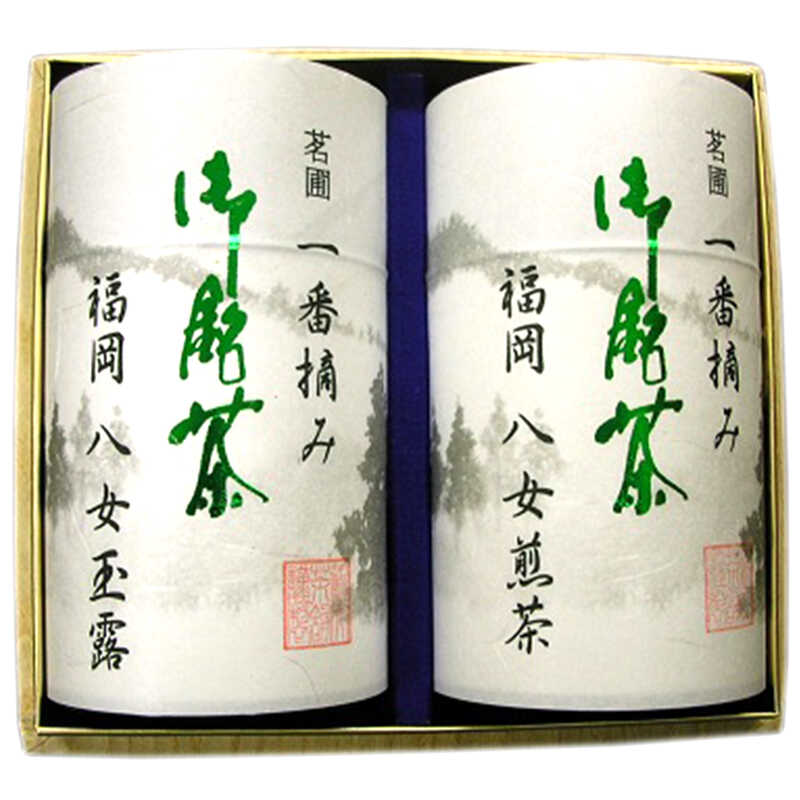 茗圃 一番摘み
御銘茶
福岡 八女玉露
茗圃 一番摘み
御銘茶
福岡 八女煎茶